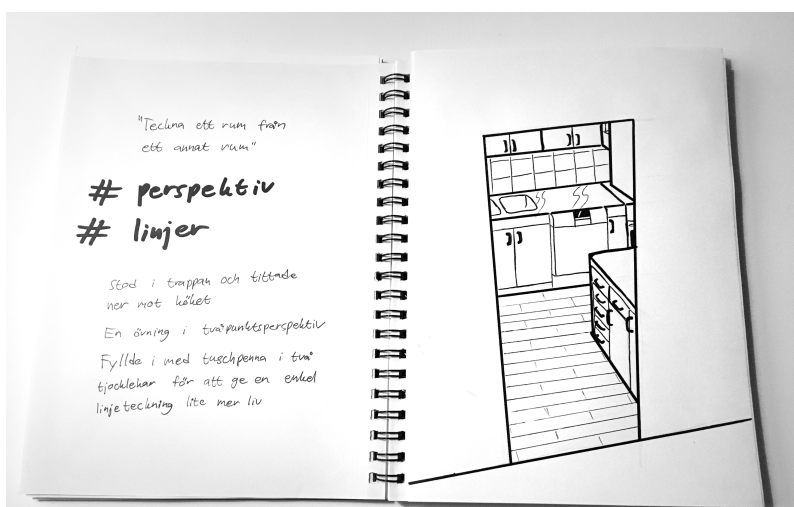 "Teckna ett rum från
ett annat rum"
# perspektiv
# linjer
Stod i trappan och tittade
ner mot köket
En övning i tvåpunktsperspektiv
Fyllde i med tuschpenna i två
tjocklekar för att ge en enkel
linjeteckning lite mer liv